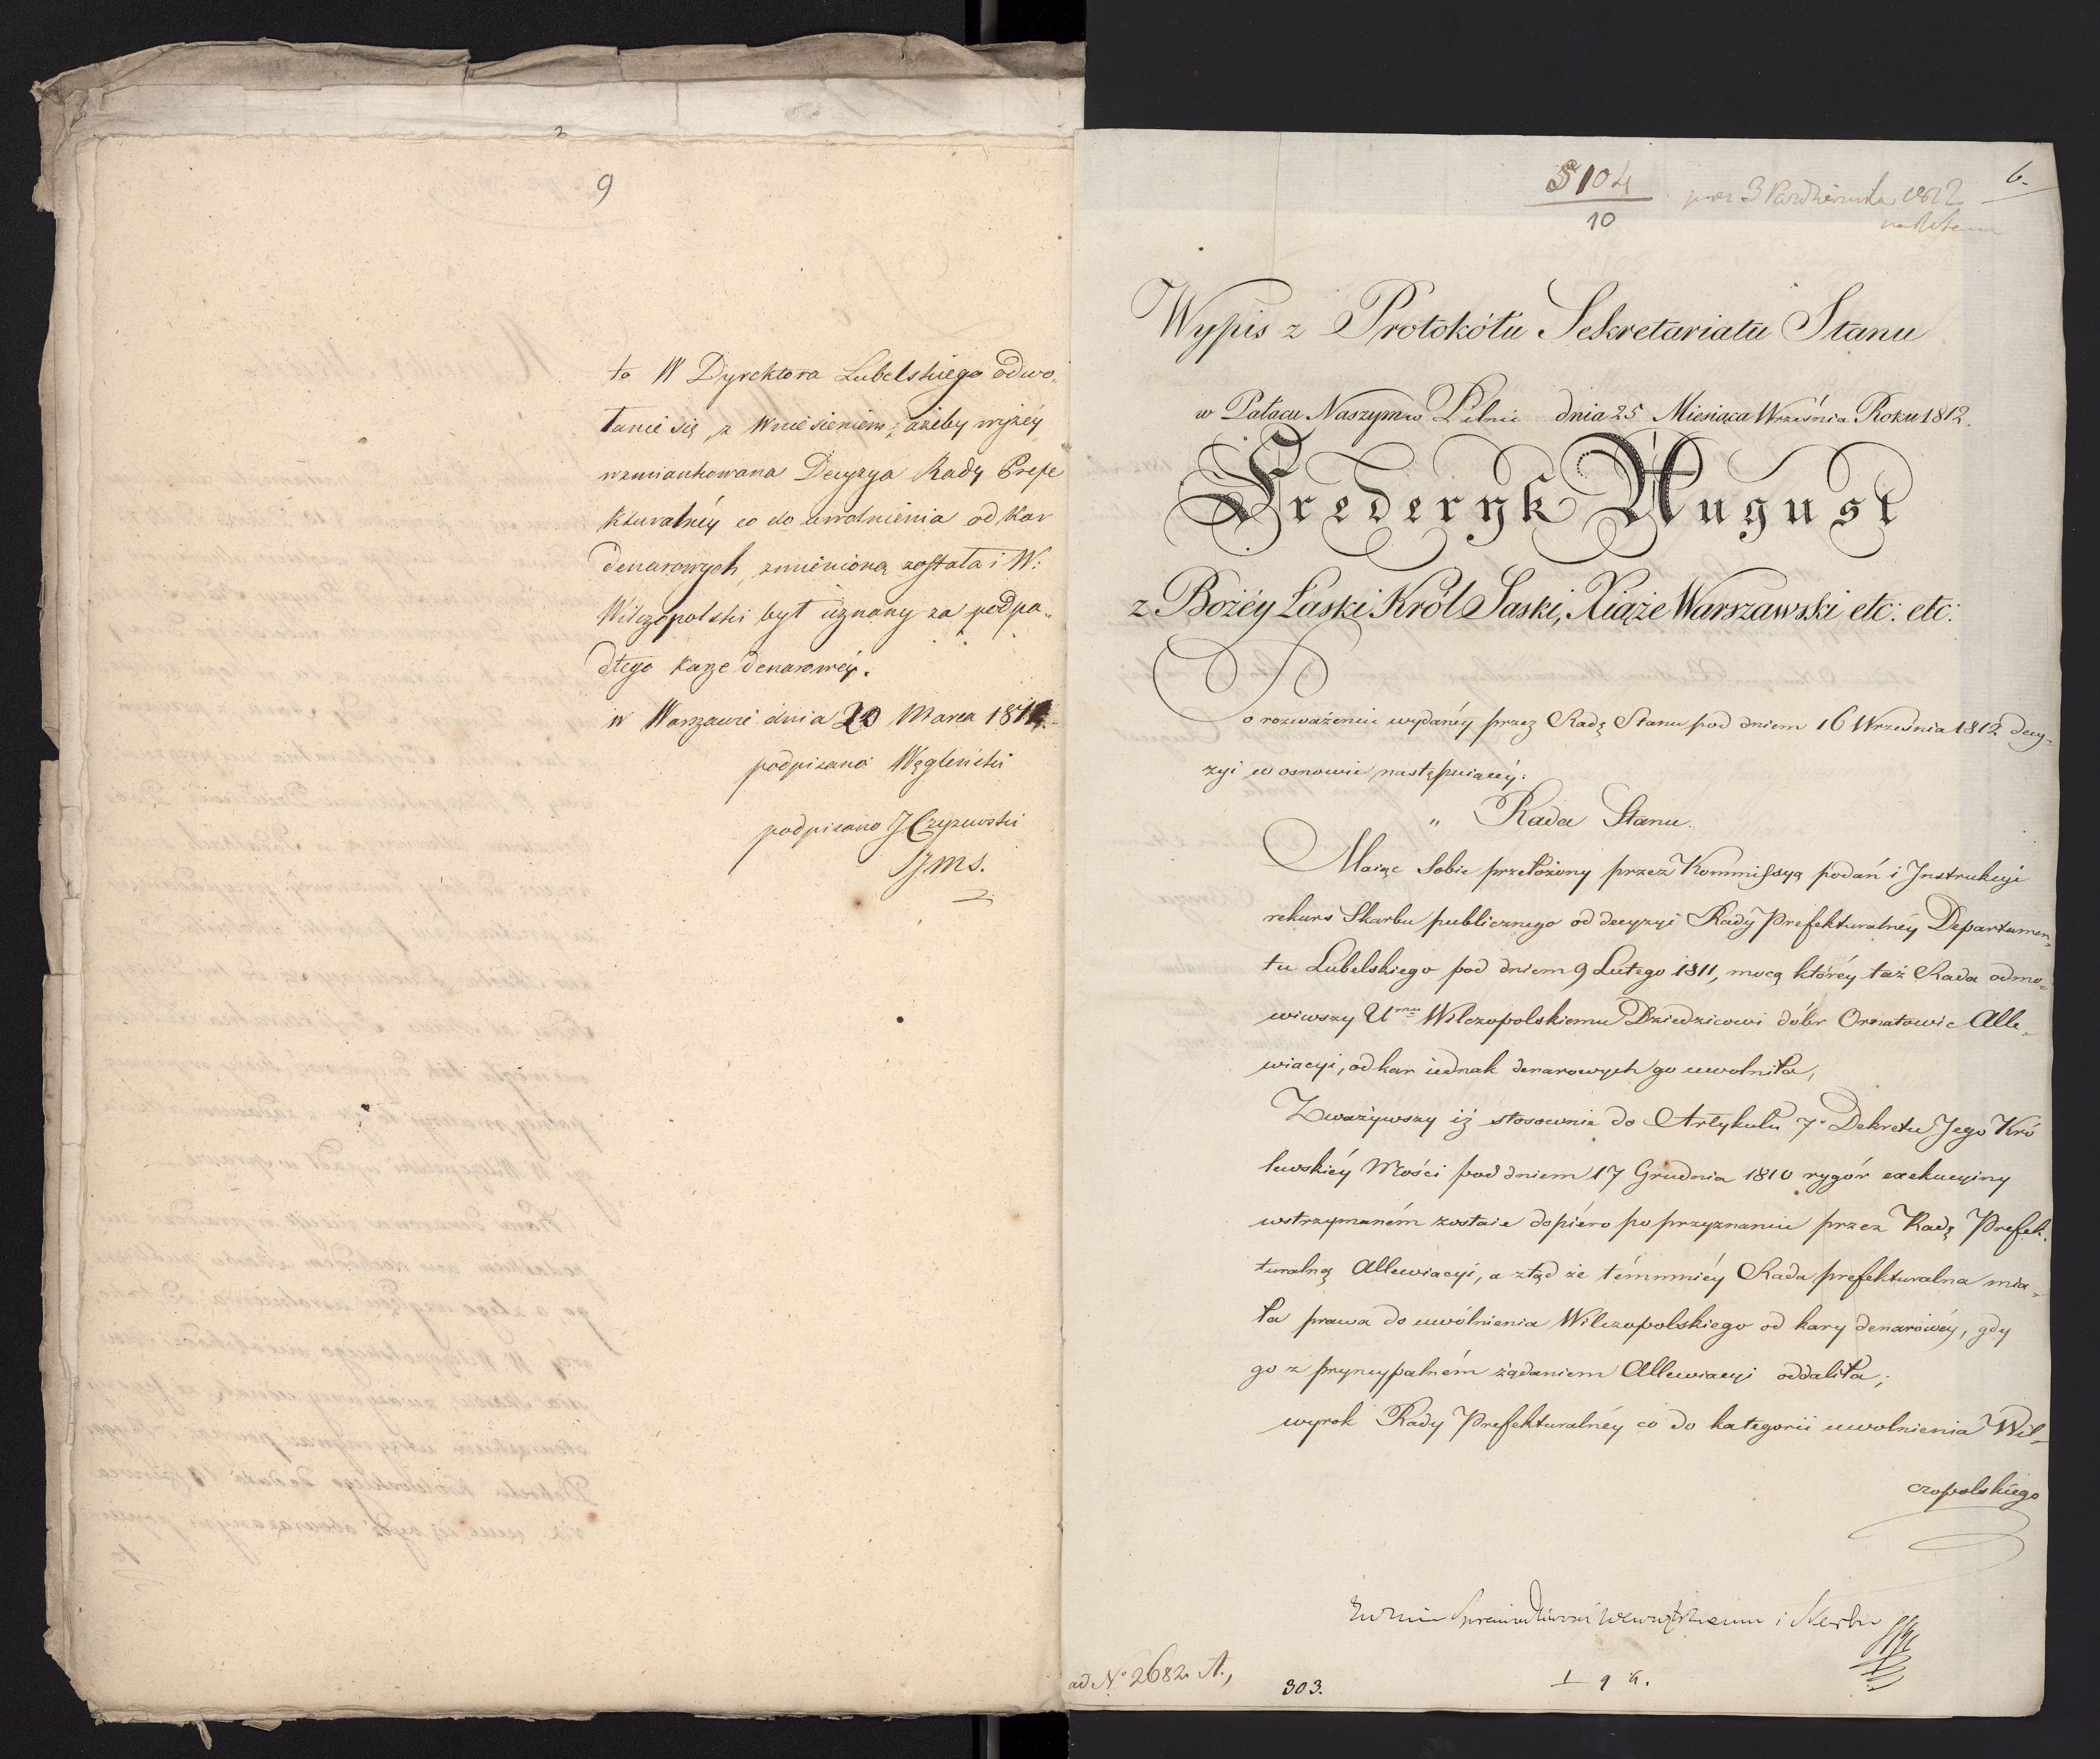 2
9
to W Dyrektora Lubelskiego odwo„
łanie się, z wniesieniem, ażeby wyżéy
wzmiankowana Decyzya Rady Prefe
kturalnéy co do uwolnienia od kar
denarowych, zmienioną została i W:
Wilczopolski był uznany za podpa„
dłego karze denarowéy.
w Warszawie dnia 20 Marca 1812.
podpisano Węgleński
podpisano J Czyżewski
Szms.
5104
10
3 Października 1812
6.
Wypis z Protokółu Sekretariatu Stanu
w Pałacu Naszym w Pilnic dnia 25 Miesiąca Września Roku 1812.
Frederyk August
z Bożéy Łaski Król Saski, Xiąże Warszawski etc: etc:
Po rozważeniu wydanéy przez Radę Stanu pod dniem 16 Września 1812 decy-
zyi w osnowie następuiącéy:
„ Rada Stanu.
Maiąc sobie przełożony przez Kommissyą podań i Instrukcyi
rekurs Skarbu publicznego od decyzyi Rady Prefekturalnéy Departamen„
tu Lubelskiego pod dniem 9 Lutego 1811, mocą któréy taż Rada odmo„
wiwszy Umu Wilczopolskiemu Dziedzicowi dóbr Ornatowic Alle„
wiacyi, od kar iednak denarowych go uwolniła,
Zważywszy iż stosownie do Artykułu 7o Dekretu Jego Kró
lewskiéy Mości pod dniem 17 Grudnia 1810 rygór exekucyiny
wstrzymaném zostaie dopiéro po przyznaniu przez Radę Prefek.
turalną Allewiacyi, a ztąd że témmniéy Rada prefekturalna mia„
ła prawa do uwólnienia Wilczopolskiego od kary denarowéy, gdy
go z pryncypalném żądaniem Allewiacyi oddaliła;
wyrok Rady Prefekturalnéy co do kategorii uwolnienia Wil-
czopolskiego
Sprawiedliwości Wewnętrznemu i Skarbu
ad No 2682. A.,
303.